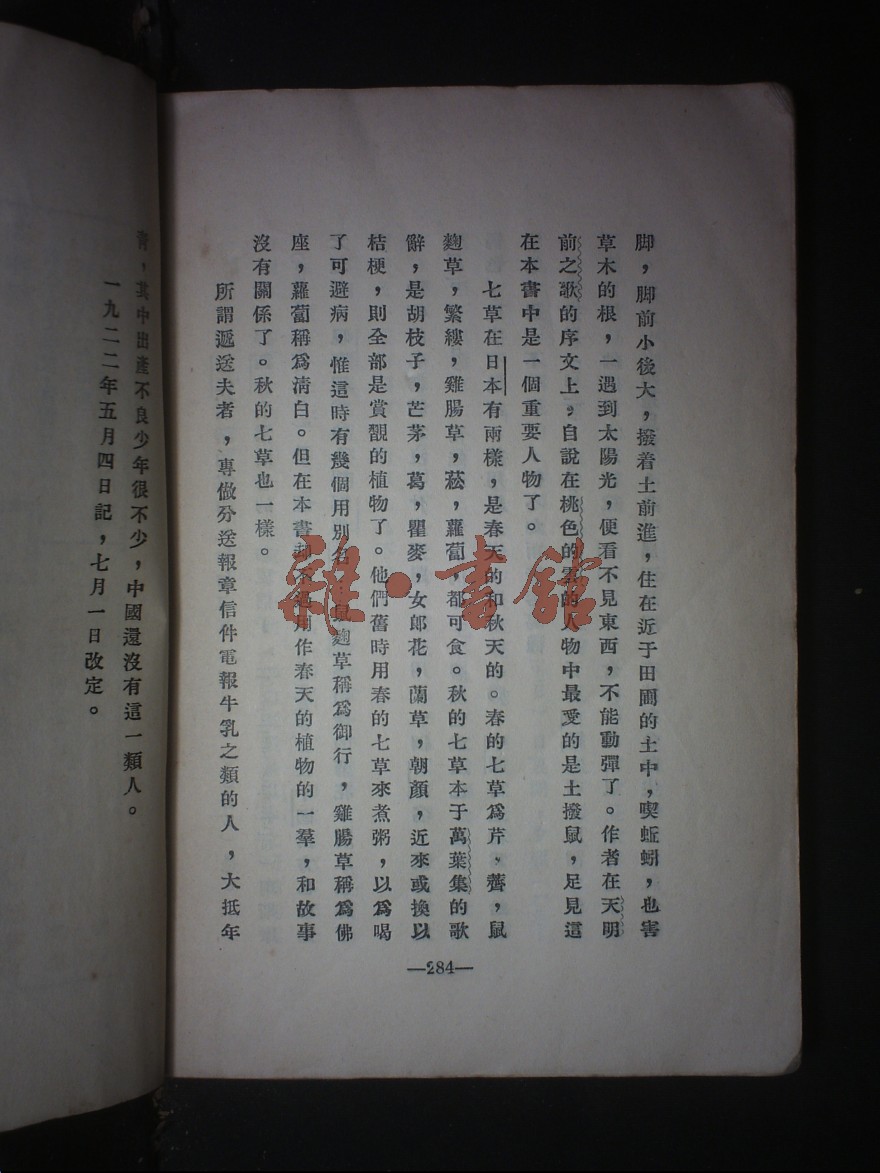 脚，脚前小後大，撥着土前進，住在近于田圃的土中，喫蚯蚓，也害
草木的根，一遇到太陽光，便看不見東西，不能動彈了。作者在天明
前之歌的序文上，自說在桃色的雲的人物中最愛的是土撥鼠，足見這
在本書中是一個重要人物了。
七草在日本有兩樣，是春天的和秋天的。春的七草爲芹，薺，鼠
麴草，繁縷，雞腸草，菘，蘿蔔，都可食。秋的七草本于萬葉集的歌
辭，是胡枝子，芒茅，葛，瞿麥，女郎花，蘭草，朝顏，近來或換以
桔梗，則全部是賞覩的植物了。他們舊時用春的七草來煮粥，以爲喝
了可避病，惟這時有幾個用別名，鼠麴草稱爲御行，雞腸草稱爲佛
座，蘿蔔稱爲淸白。但在本書却不過用作春天的植物的一羣，和故事
沒有關係了。秋的七草也一樣。
所謂遞送夫者，專做分送報章信件電報牛乳之類的人，大抵年
靑，其中出產不良少年很不少，中國還沒有這一類人。
一九二二年五月四日記，七月一日改定。
—284—
雜·書館